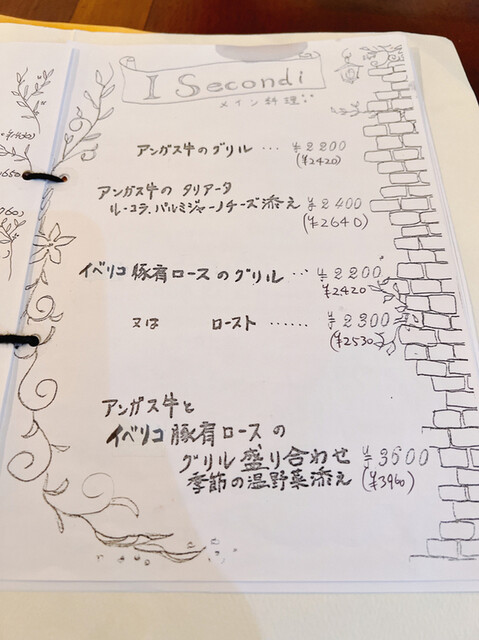 I Secondi
メイン料理
アンガス牛のグリル … ¥2200
(¥2420)
アンガス牛の タリアータ
ルーコラ、パルミジャーノチーズ添え ¥2400
(¥2640)
イベリコ豚肩ロースのグリル … ¥2200
¥2420
又は ロースト …… ¥2300
(¥2530)
アンガス牛と
イベリコ豚肩ロースの
グリル盛り合わせ ¥3600
季節の温野菜添え (¥3960)